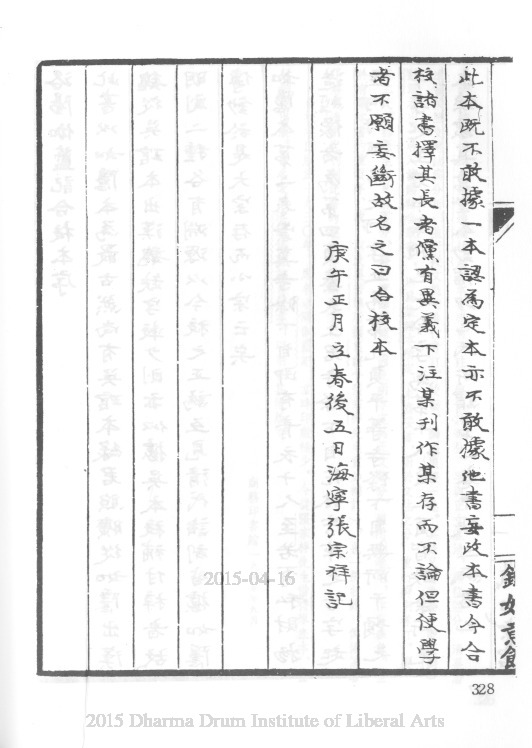 此本既不敢據一本認爲定本亦不敢據他書妄改本書今合
校諸書擇其長者儻有異義下注某刊作某存而不論但使學
者不願妄斷故名之曰合校本
庚午正月立春後五日海寧張宗祥記
328
2015-04-16
2015 Dharma Drum Institute of Liberal Arts